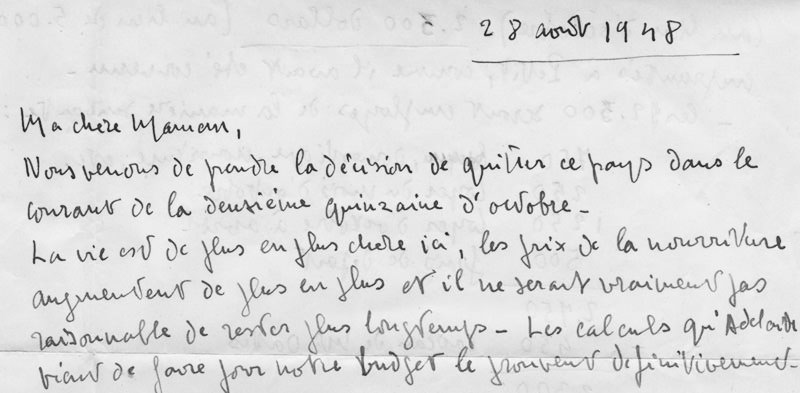 28 août 1948
Ma chère Maman,
Nous venons de prendre la décision de quitter ce pays dans le
courant de la deuxième quinzaine d'octobre -
La vie est de plus en plus chère ici, les prix de la nourriture
augmentent de plus en plus et il ne serait vraiment pas
raisonnable de rester plus longtemps - Les calculs qu'Adelaïde
vient de faire pour notre budget le prouvent définitivement -